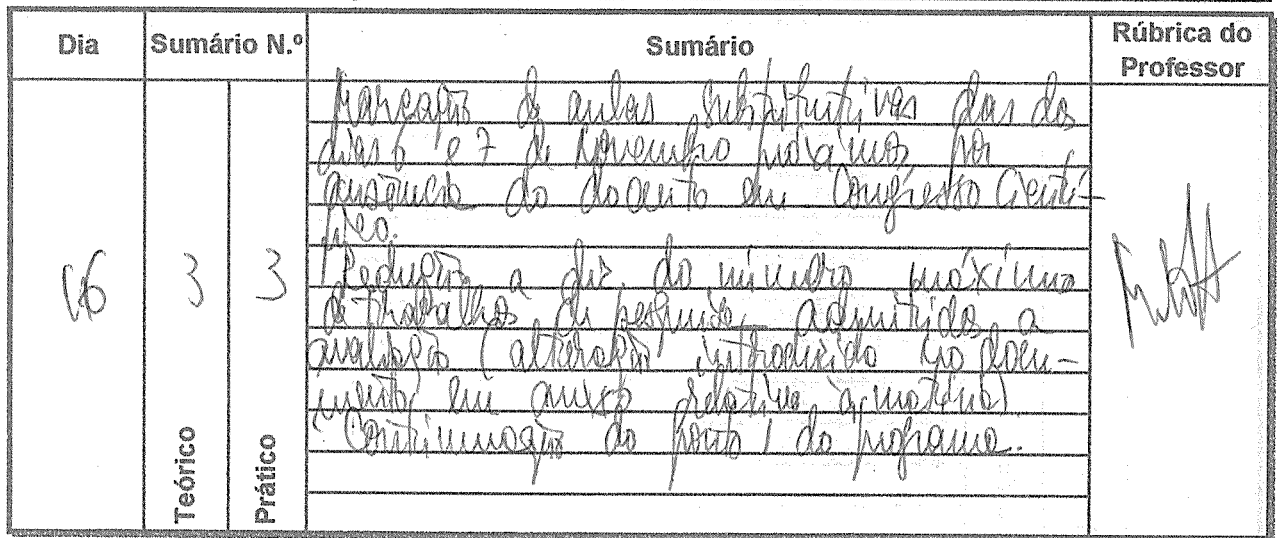 Dia
Sumário N.º
Sumário
Rúbrica do
Professor
Marcação de aulas substitutivas das dos
dias 6 e 7 de novembro próximos por
ausência do docente em Congresso Cientí-
fico.
Redução a dez do número máximo
de trabalhos de pesquisa admitidos a
avaliação (alteração introduzida no docu-
mento em anexo relativo à matéria)
Continuação do ponto 1 do programa.
16
3
3
Teórico
Prático